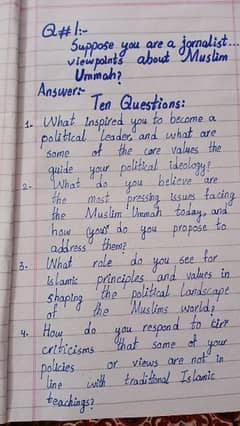 Q#1:-
Suppose you are a jornalist...
viewpoints about Muslim
Ummah?
Answer:-
Ten Questions:
1. What inspired you to become a
political leader, and what are
some of the core values the
guide your political ideology?
2. What do you believe are
the most pressing issues facing
the Muslim Ummah today, and
how (you) do you propose to
address them?
3. What role do you see for
islamic principles and values in
shaping the political landscape
of the Muslims world?
4. How do you respond to
criticisms that some of your
policies or views are not in
line with traditional Islamic
teachings?